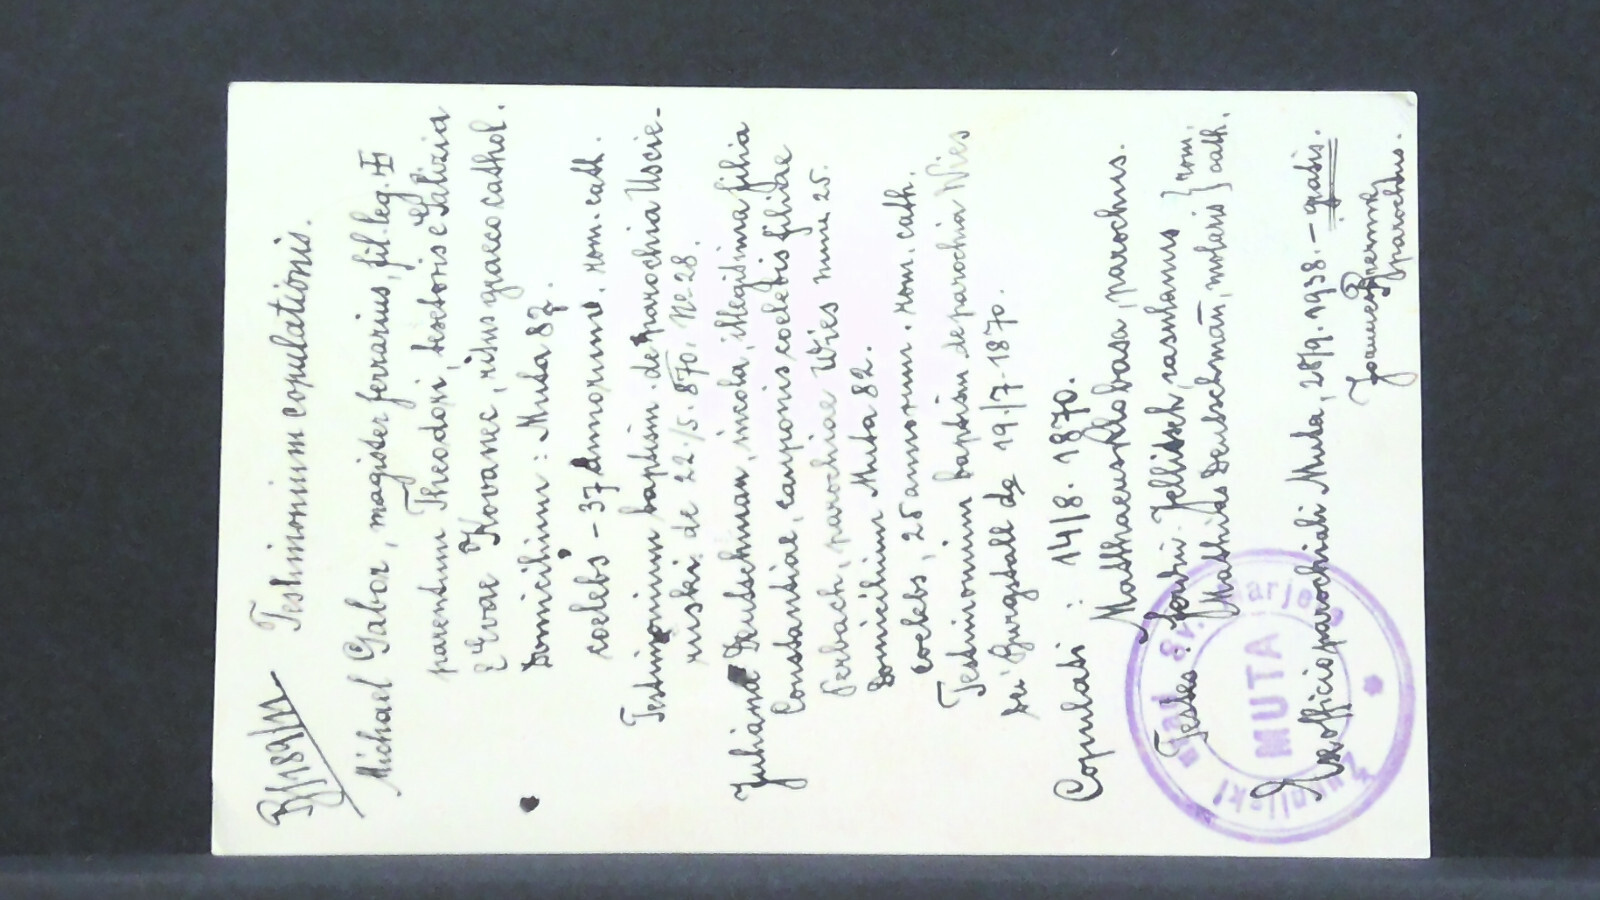 B/189/III
Testimonium copulationis.
Michael Gabor, magister ferrarius, fil. leg. ##
parentum Theodori, textoris e Galizia
& Evae Kovanec, ritus graeco cathol.
Domicilium: Muta 87.
coelebs - 37 annorum. rom. cath.
Testimonium baptism. de parochia Uscie-
ruski de 22./5. 870. No 28.
Juliana Deutschman, incola, illegitima filia
Constantiae, cauponis coelebis filiae
Perbach, parochiae Wies num 25.
Domicilium Muta 82.
coelebs, 25 annorum. rom. cath.
Testimonium baptism de parochia Wies
bei Burgstall de 19./7. 1870.
Copulati: 14/8. 1870.
Matthaeus Klobasa, parochus.
Testes: Jellitsch } rom.
Mathias Deutschman, molaris } cath.
Ex officio parochiali Muta, 28/9. 1938. - gratis.
Joannes
parochus.
Župnijski urad Sv. Marjete
MUTA